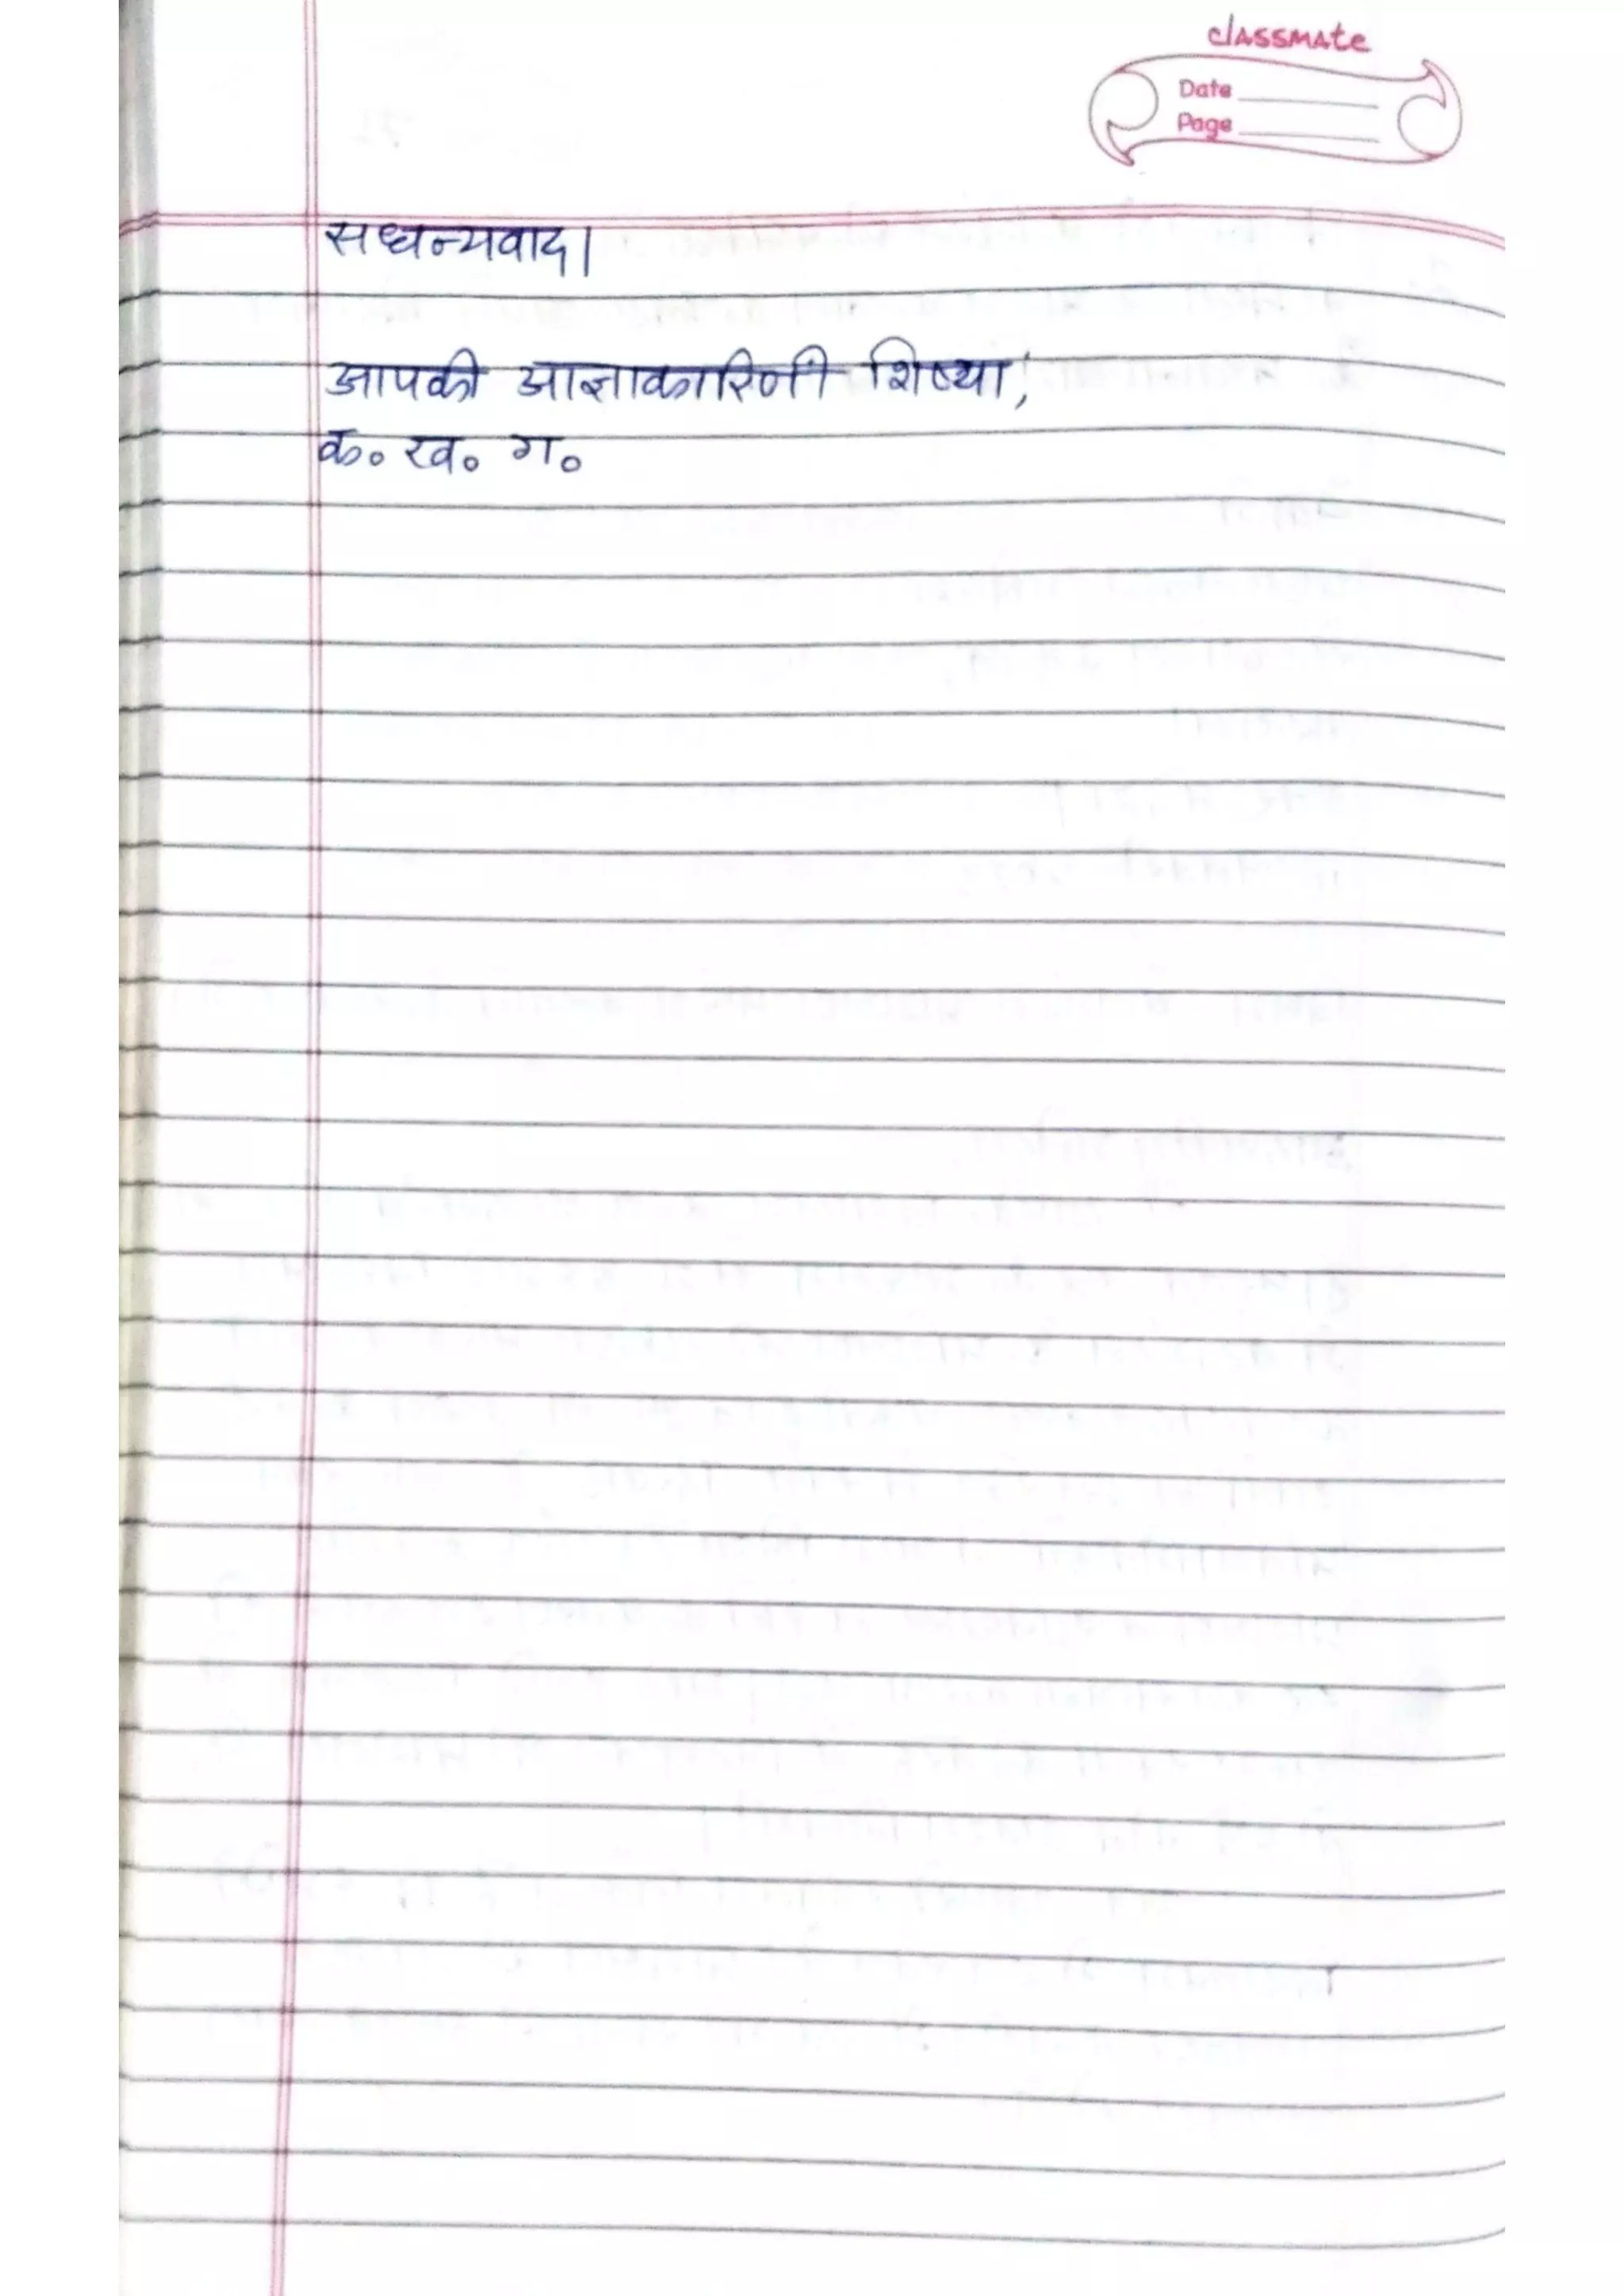 classmate
Date
Page
सधन्यवाद।
आपकी आज्ञाकारिणी शिष्या,
क॰ ख॰ ग॰